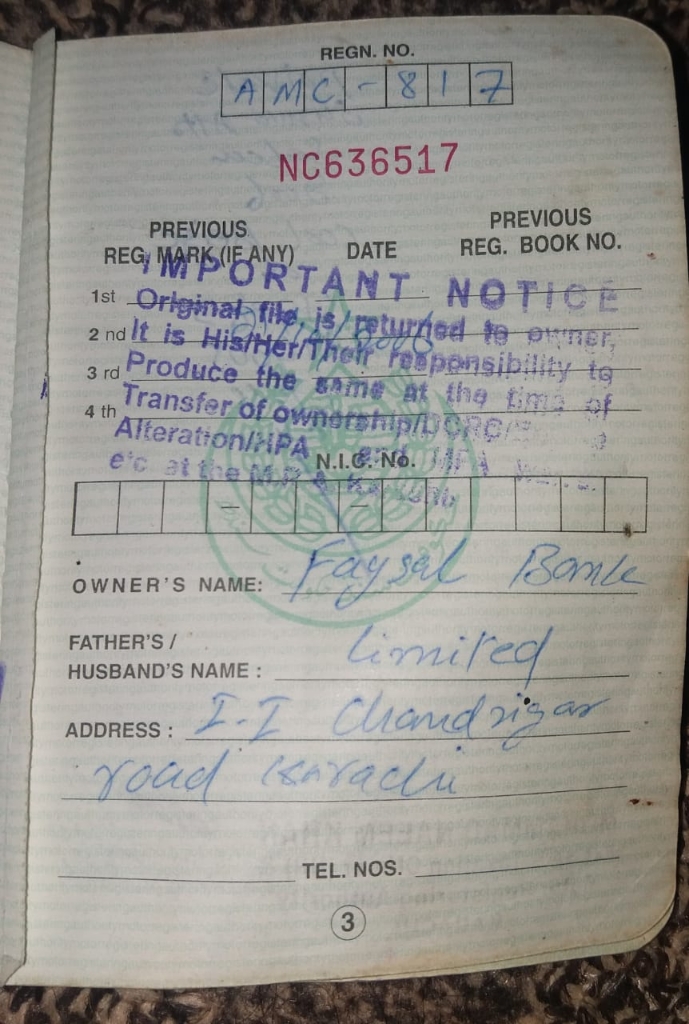 REGN. NO.
AMC-817
NC636517
PREVIOUS REG. MARK (IF ANY)
DATE
PREVIOUS REG. BOOK NO.
IMPORTANT NOTICE
1st
Original file is returned to owner,
2 nd
It is His/Her/Their responsibility to
3 rd
Produce the same at the time of
4 th
Transfer of ownership/
Alteration/HPA
etc at the M.R.
N.I.C. No.
OWNER'S NAME: Faysal Bank
FATHER'S /
HUSBAND'S NAME : Limited
ADDRESS : I.I Chandrigar
road Karachi
TEL. NOS.
3